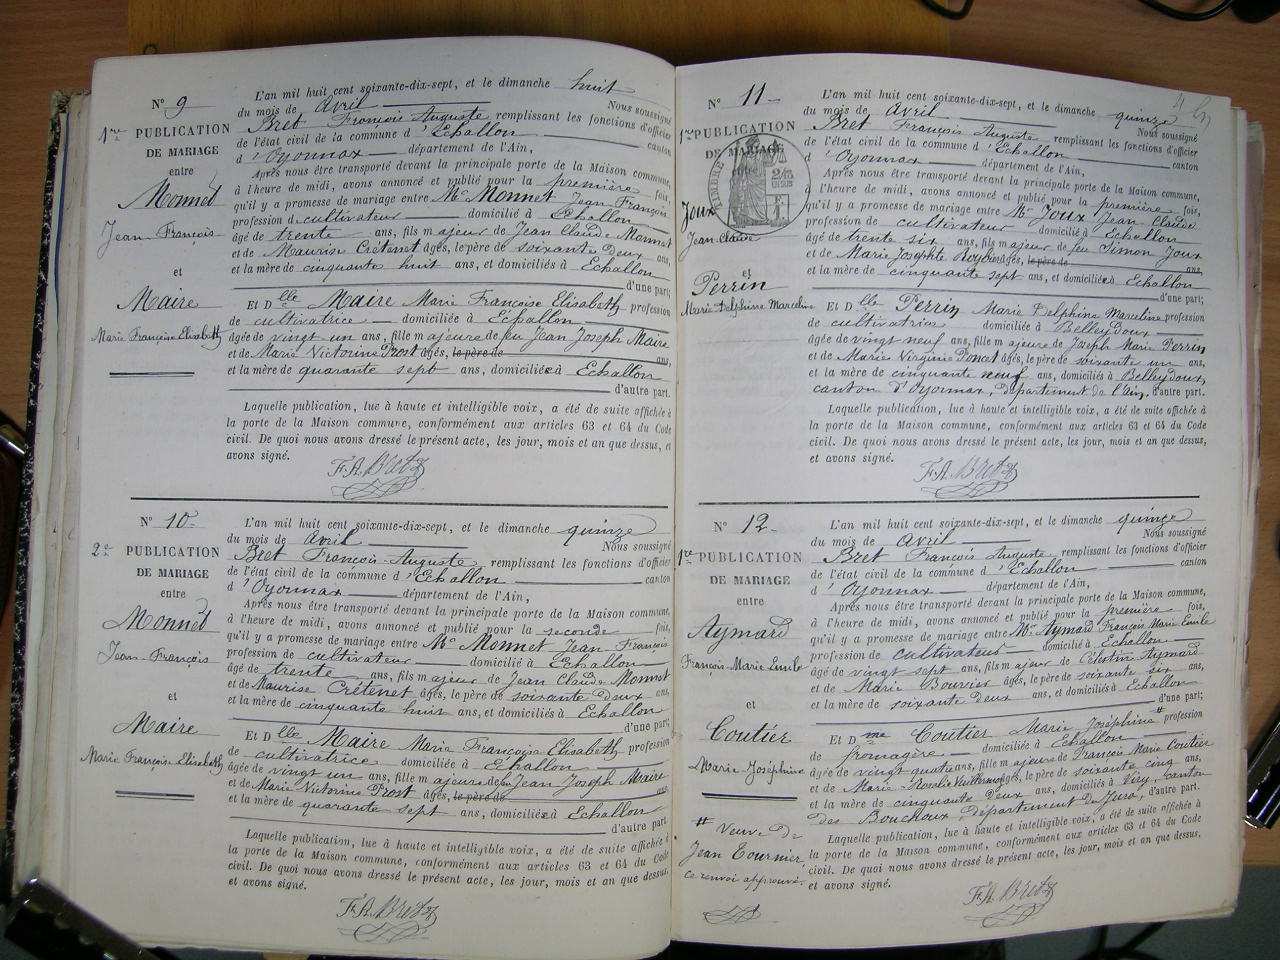 N° 9
1re PUBLICATION
DE MARIAGE
entre
Monnet
Jean-François
et
Maire
Marie Françoise Elisabeth
L'an mil huit cent soixante-dix-sept, et le dimanche huit
du mois de Avril Nous soussigné
Bret François Auguste remplissant les fonctions d'officier
de l'état civil de la commune d'Echallon canton
d'Oyonnax département de l'Ain,
Après nous être transporté devant la principale porte de la Maison commune,
à l'heure de midi, avons annoncé et publié pour la première fois,
qu'il y a promesse de mariage entre Mr Monnet Jean François
profession de cultivateur domicilié à Echallon
âgé de trente ans, fils majeur de Jean Claude Monnet
et de Maurise Crétenet âgés, le père de soixante deux ans,
et la mère de cinquante huit ans, et domiciliés à Echallon
d'une part;
Et Dlle Maire Marie Françoise Elisabeth profession
de cultivatrice domiciliée à Echallon
âgée de vingt un ans, fille majeure de feu Jean Joseph Maire
et de Marie Victorine Prost âgés, le père de ans,
et la mère de quarante sept ans, domiciliée à Echallon
d'autre part.
Laquelle publication, lue à haute et intelligible voix, a été de suite affichée à
la porte de la Maison commune, conformément aux articles 63 et 64 du Code
civil. De quoi nous avons dressé le présent acte, les jour, mois et an que dessus, et
avons signé.
F.A. Bret
N° 10
2e PUBLICATION
DE MARIAGE
entre
Monnet
Jean-François
et
Maire
Marie François Elisabeth
L'an mil huit cent soixante-dix-sept, et le dimanche quinze
du mois de Avril Nous soussigné
Bret François Auguste remplissant les fonctions d'officier
de l'état civil de la commune d'Echallon canton
d'Oyonnax département de l'Ain,
Après nous être transporté devant la principale porte de la Maison commune,
à l'heure de midi, avons annoncé et publié pour la seconde fois,
qu'il y a promesse de mariage entre Mr Monnet Jean François
profession de cultivateur domicilié à Echallon
âgé de trente ans, fils majeur de Jean Claude Monnet
et de Maurise Crétenet âgés, le père de soixante deux ans,
et la mère de cinquante huit ans, et domiciliés à Echallon
d'une part;
Et Dlle Maire Marie Françoise Elisabeth profession
de cultivatrice domiciliée à Echallon
âgée de vingt un ans, fille majeure de feu Jean Joseph Maire
et de Marie Victorine Prost âgés, le père de ans,
et la mère de quarante sept ans, domiciliée à Echallon
d'autre part.
Laquelle publication, lue à haute et intelligible voix, a été de suite affichée à
la porte de la Maison commune, conformément aux articles 63 et 64 du Code
civil. De quoi nous avons dressé le présent acte, les jour, mois et an que dessus,
et avons signé.
F.A. Bret
N° 11
1re PUBLICATION
DE MARIAGE
TIMBRE
Joux
Jean-Claude
et
Perrin
Marie Delphine Marceline
L'an mil huit cent soixante-dix-sept, et le dimanche quinze
du mois de Avril Nous soussigné
Bret François Auguste remplissant les fonctions d'officier
de l'état civil de la commune d'Echallon canton
d'Oyonnax département de l'Ain,
Après nous être transporté devant la principale porte de la Maison commune,
à l'heure de midi, avons annoncé et publié pour la première fois,
qu'il y a promesse de mariage entre Mr Joux Jean Claude
profession de cultivateur domicilié à Echallon
âgé de trente six ans, fils majeur de feu Simon Joux
et de Marie Josephte âgés, le père de ans,
et la mère de cinquante sept ans, et domiciliée à Echallon
d'une part;
Et Dlle Perrin Marie Delphine Marceline profession
de cultivatrice domiciliée à Belleydoux
âgée de vingt neuf ans, fille majeure de Joseph Marie Perrin
et de Marie Virginie Poncet âgés, le père de soixante un ans,
et la mère de cinquante neuf ans, domiciliés à Belleydoux,
canton d'Oyonnax, département de l'Ain, d'autre part.
Laquelle publication, lue à haute et intelligible voix, a été de suite affichée à
la porte de la Maison commune, conformément aux articles 63 et 64 du Code
civil. De quoi nous avons dressé le présent acte, les jour, mois et an que dessus,
et avons signé.
F.A. Bret
N° 12
1re PUBLICATION
DE MARIAGE
entre
Aymard
François Marie Emile
et
Coutier
Marie Joséphine
# Veuve de
Jean Tournier,
ce renvoi approuvé.
L'an mil huit cent soixante-dix-sept, et le dimanche quinze
du mois de Avril Nous soussigné
Bret François Auguste remplissant les fonctions d'officier
de l'état civil de la commune d'Echallon canton
d'Oyonnax département de l'Ain,
Après nous être transporté devant la principale porte de la Maison commune,
à l'heure de midi, avons annoncé et publié pour la première fois,
qu'il y a promesse de mariage entre Mr Aymard François Marie Emile
profession de cultivateur domicilié à Echallon
âgé de vingt sept ans, fils majeur de Célestin Aymard
et de Marie Bouvier âgés, le père de soixante six ans,
et la mère de soixante deux ans, et domiciliés à Echallon
d'une part;
Et Dme Coutier Marie Joséphine # profession
de fromagère domiciliée à Echallon
âgée de vingt quatre ans, fille majeure de François Marie Coutier
et de Marie Rosalie âgés, le père de soixante cinq ans,
et la mère de cinquante deux ans, domiciliés à Viry, canton
des Bouchoux, département du Jura, d'autre part.
Laquelle publication, lue à haute et intelligible voix, a été de suite affichée à
la porte de la Maison commune, conformément aux articles 63 et 64 du Code
civil. De quoi nous avons dressé le présent acte, les jour, mois et an que dessus,
et avons signé.
F.A. Bret